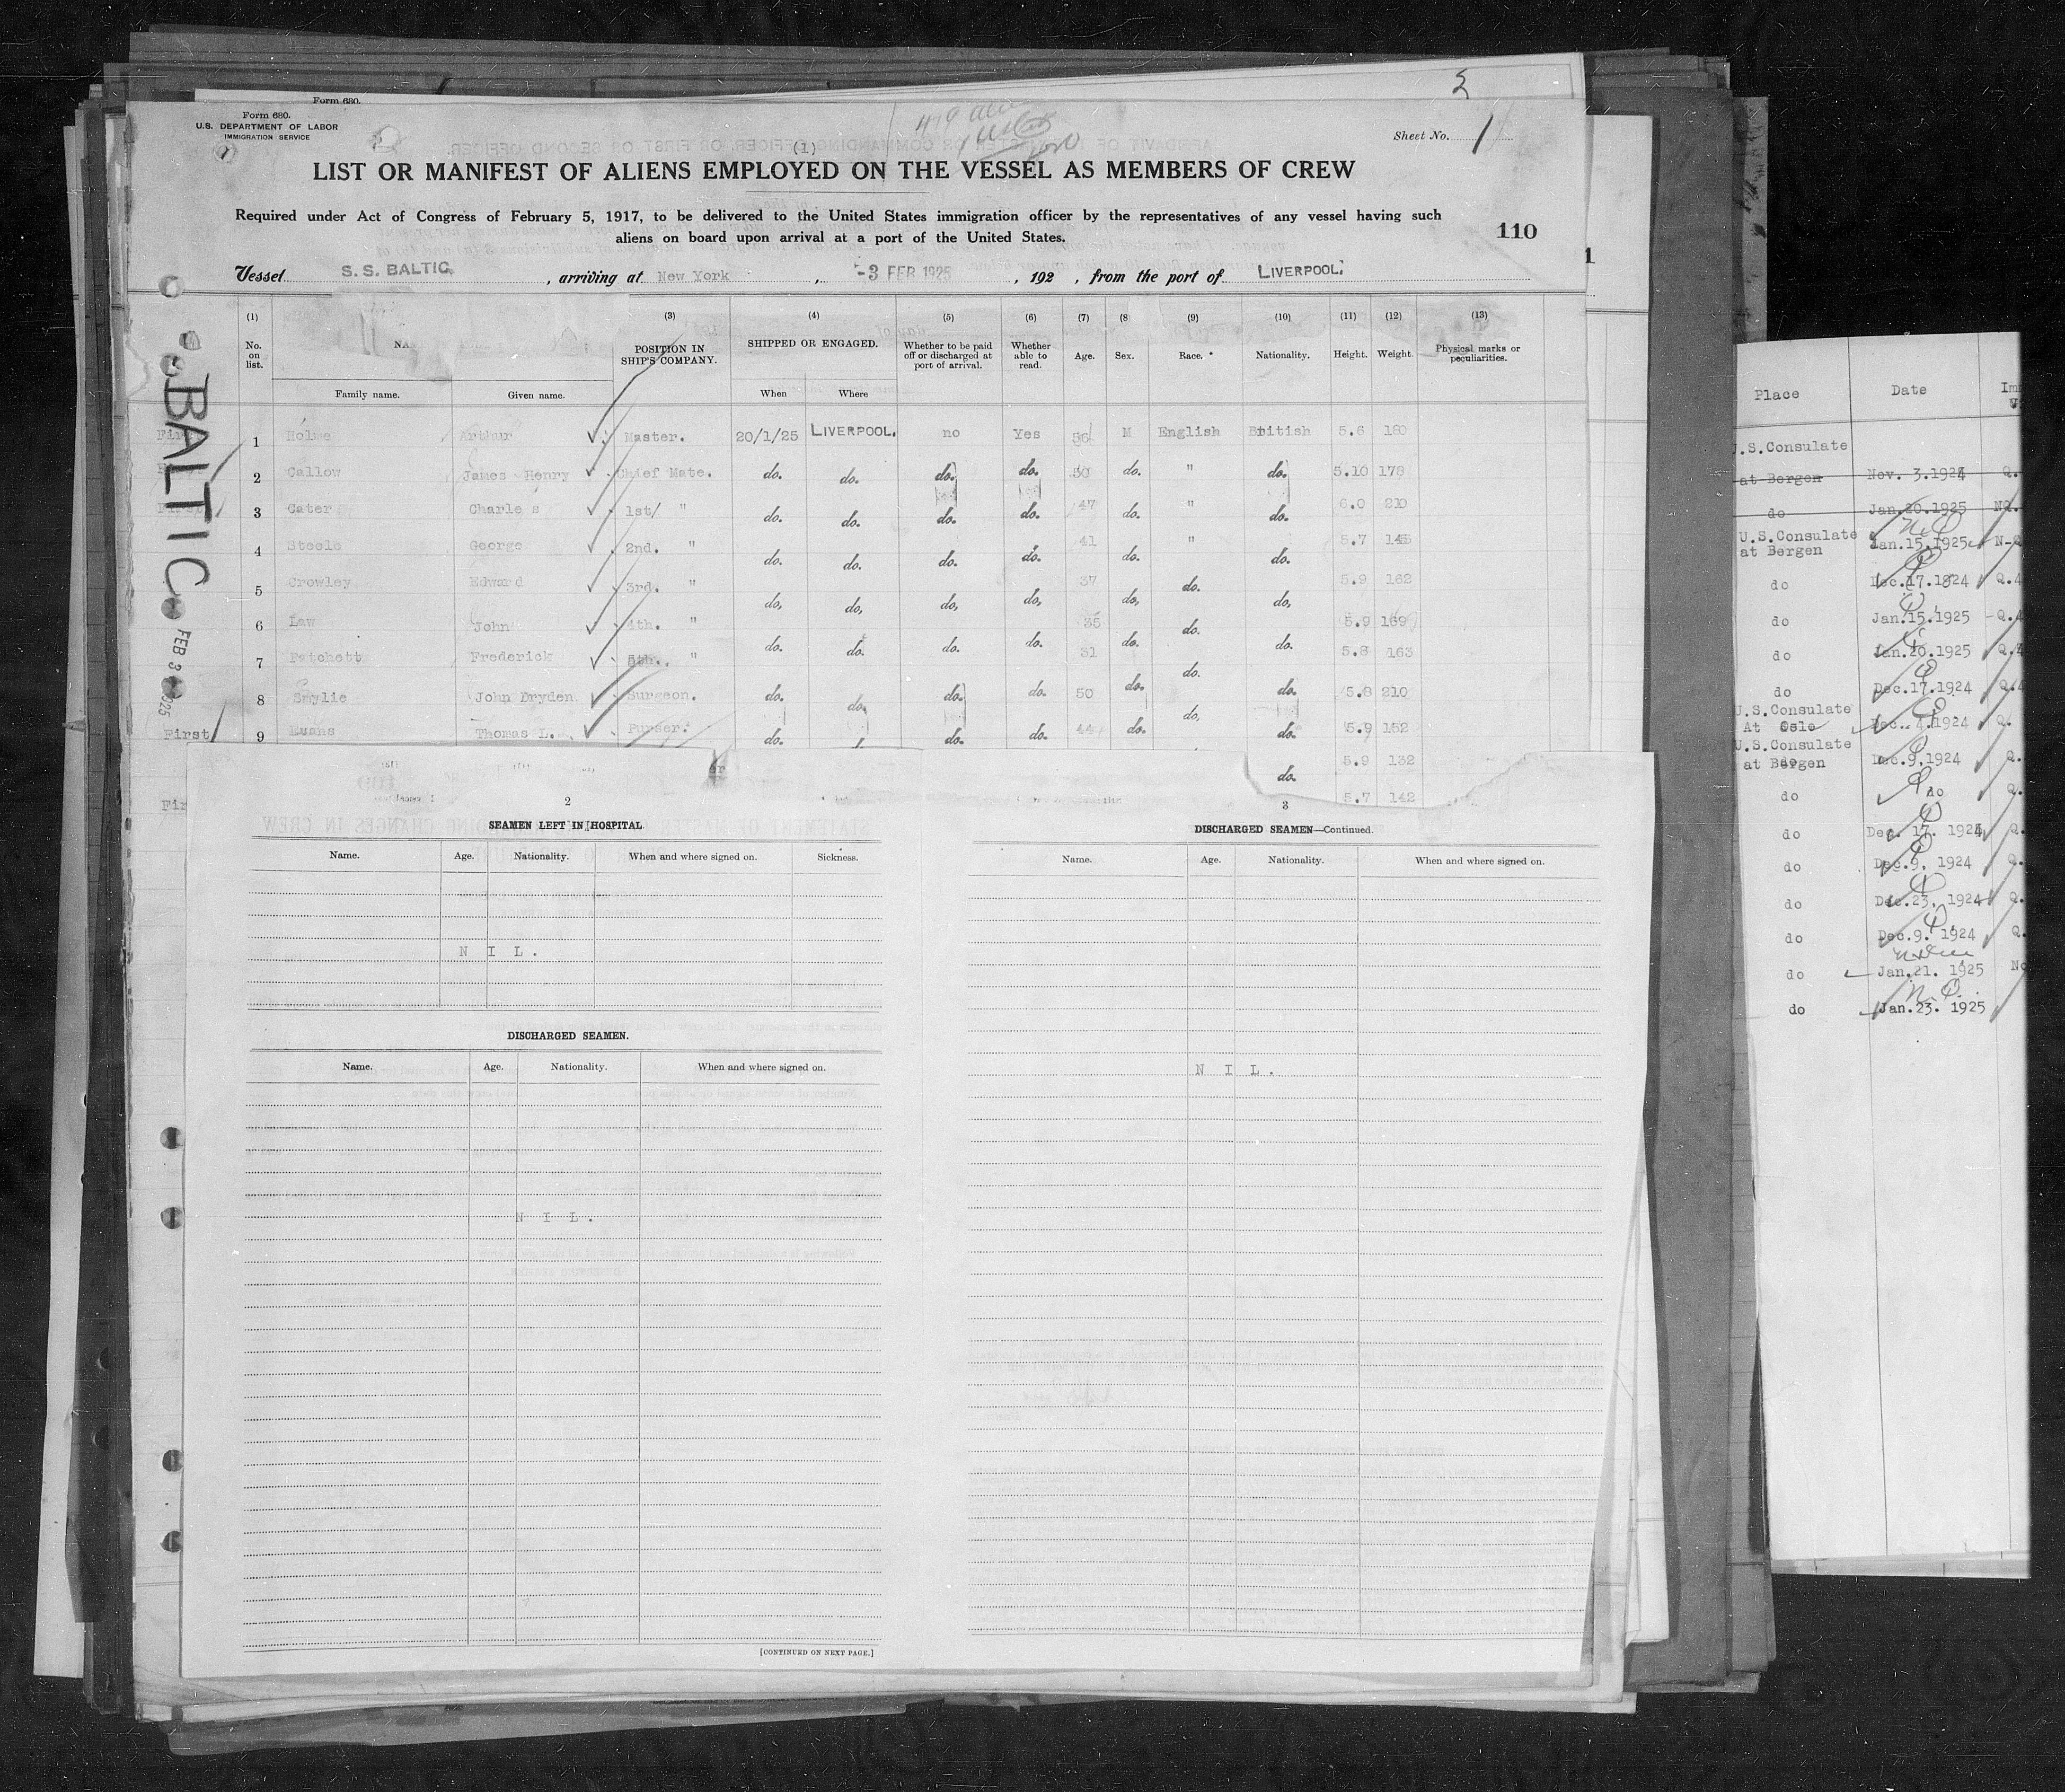 Form 680.
Form 680.
U.S. DEPARTMENT OF LABOR
IMMIGRATION SERVICE
Sheet No. 1
(1)
LIST OR MANIFEST OF ALIENS EMPLOYED ON THE VESSEL AS MEMBERS OF CREW
Required under Act of Congress of February 5, 1917, to be delivered to the United States immigration officer by the representatives of any vessel having such
aliens on board upon arrival at a port of the United States.
110
Vessel S. S. BALTIC, arriving at New York, -3 FEB 1925, 192 , from the port of LIVERPOOL.
(1) (3) (4) (5) (6) (7) (8 (9) (10) (11) (12) (13)
No. on list. NA POSITION IN SHIP'S COMPANY. SHIPPED OR ENGAGED. Whether to be paid off or discharged at port of arrival. Whether able to read. Age. Sex. Race. * Nationality. Height. Weight. Physical marks or peculiarities.
Family name. Given name. When Where
1 Holme Arthur Master. 20/1/25 LIVERPOOL. no Yes 56 M English British 5.6 180
2 Callow James Henry Chief Mate. do. do. do. do. 50 do. " do. 5.10 178
3 Cater Charles 1st/ " do. do. do. do. 47 do. " do. 6.0 210
4 Steele George 2nd. " do. do. do. do. 41 do. " do. 5.7 145
5 Crowley Edward 3rd. " do. do. do. do. 37 do. do. do. 5.9 162
6 Law John 4th. " do. do. do. do. 35 do. do. do. 5.9 169
7 Patchett Frederick 5th. " do. do. do. do. 31 do. do. do. 5.8 163
8 Smylie John Dryden Surgeon. do. do. do. do. 50 do. do. do. 5.8 210
First 9 Evans Thomas L. Purser. do. do. do. 44 do. do. 5.9 152
do. 5.9 132
Fir 5.7 142
BALTIC
FEB 3 1925
2
SEAMEN LEFT IN HOSPITAL
Name. Age. Nationality. When and where signed on. Sickness.
N I L.
DISCHARGED SEAMEN.
Name. Age. Nationality. When and where signed on.
N I L.
[CONTINUED ON NEXT PAGE.]
3
DISCHARGED SEAMEN—Continued.
Name. Age. Nationality. When and where signed on.
N I L.
Place Date
U.S.Consulate
at Bergen Nov. 3.1924 Q.
do Jan.20.1925 NQ.
U.S.Consulate
at Bergen Jan.15.1925 N-Q
do Dec.17.1924 Q.4
do Jan.15.1925 Q.4
do Jan.20.1925 Q.
do Dec.17.1924 Q.4
U.S.Consulate
At Oslo Dec. 4.1924 Q.
U.S.Consulate
at Bergen Dec.9.1924 Q.
do do Q.
do Dec. 17. 1924 Q.
do Dec.9. 1924 Q.
do Dec.23. 1924 Q.
do Dec.9. 1924 Q.
do Jan.21. 1925 No
do Jan.23. 1925